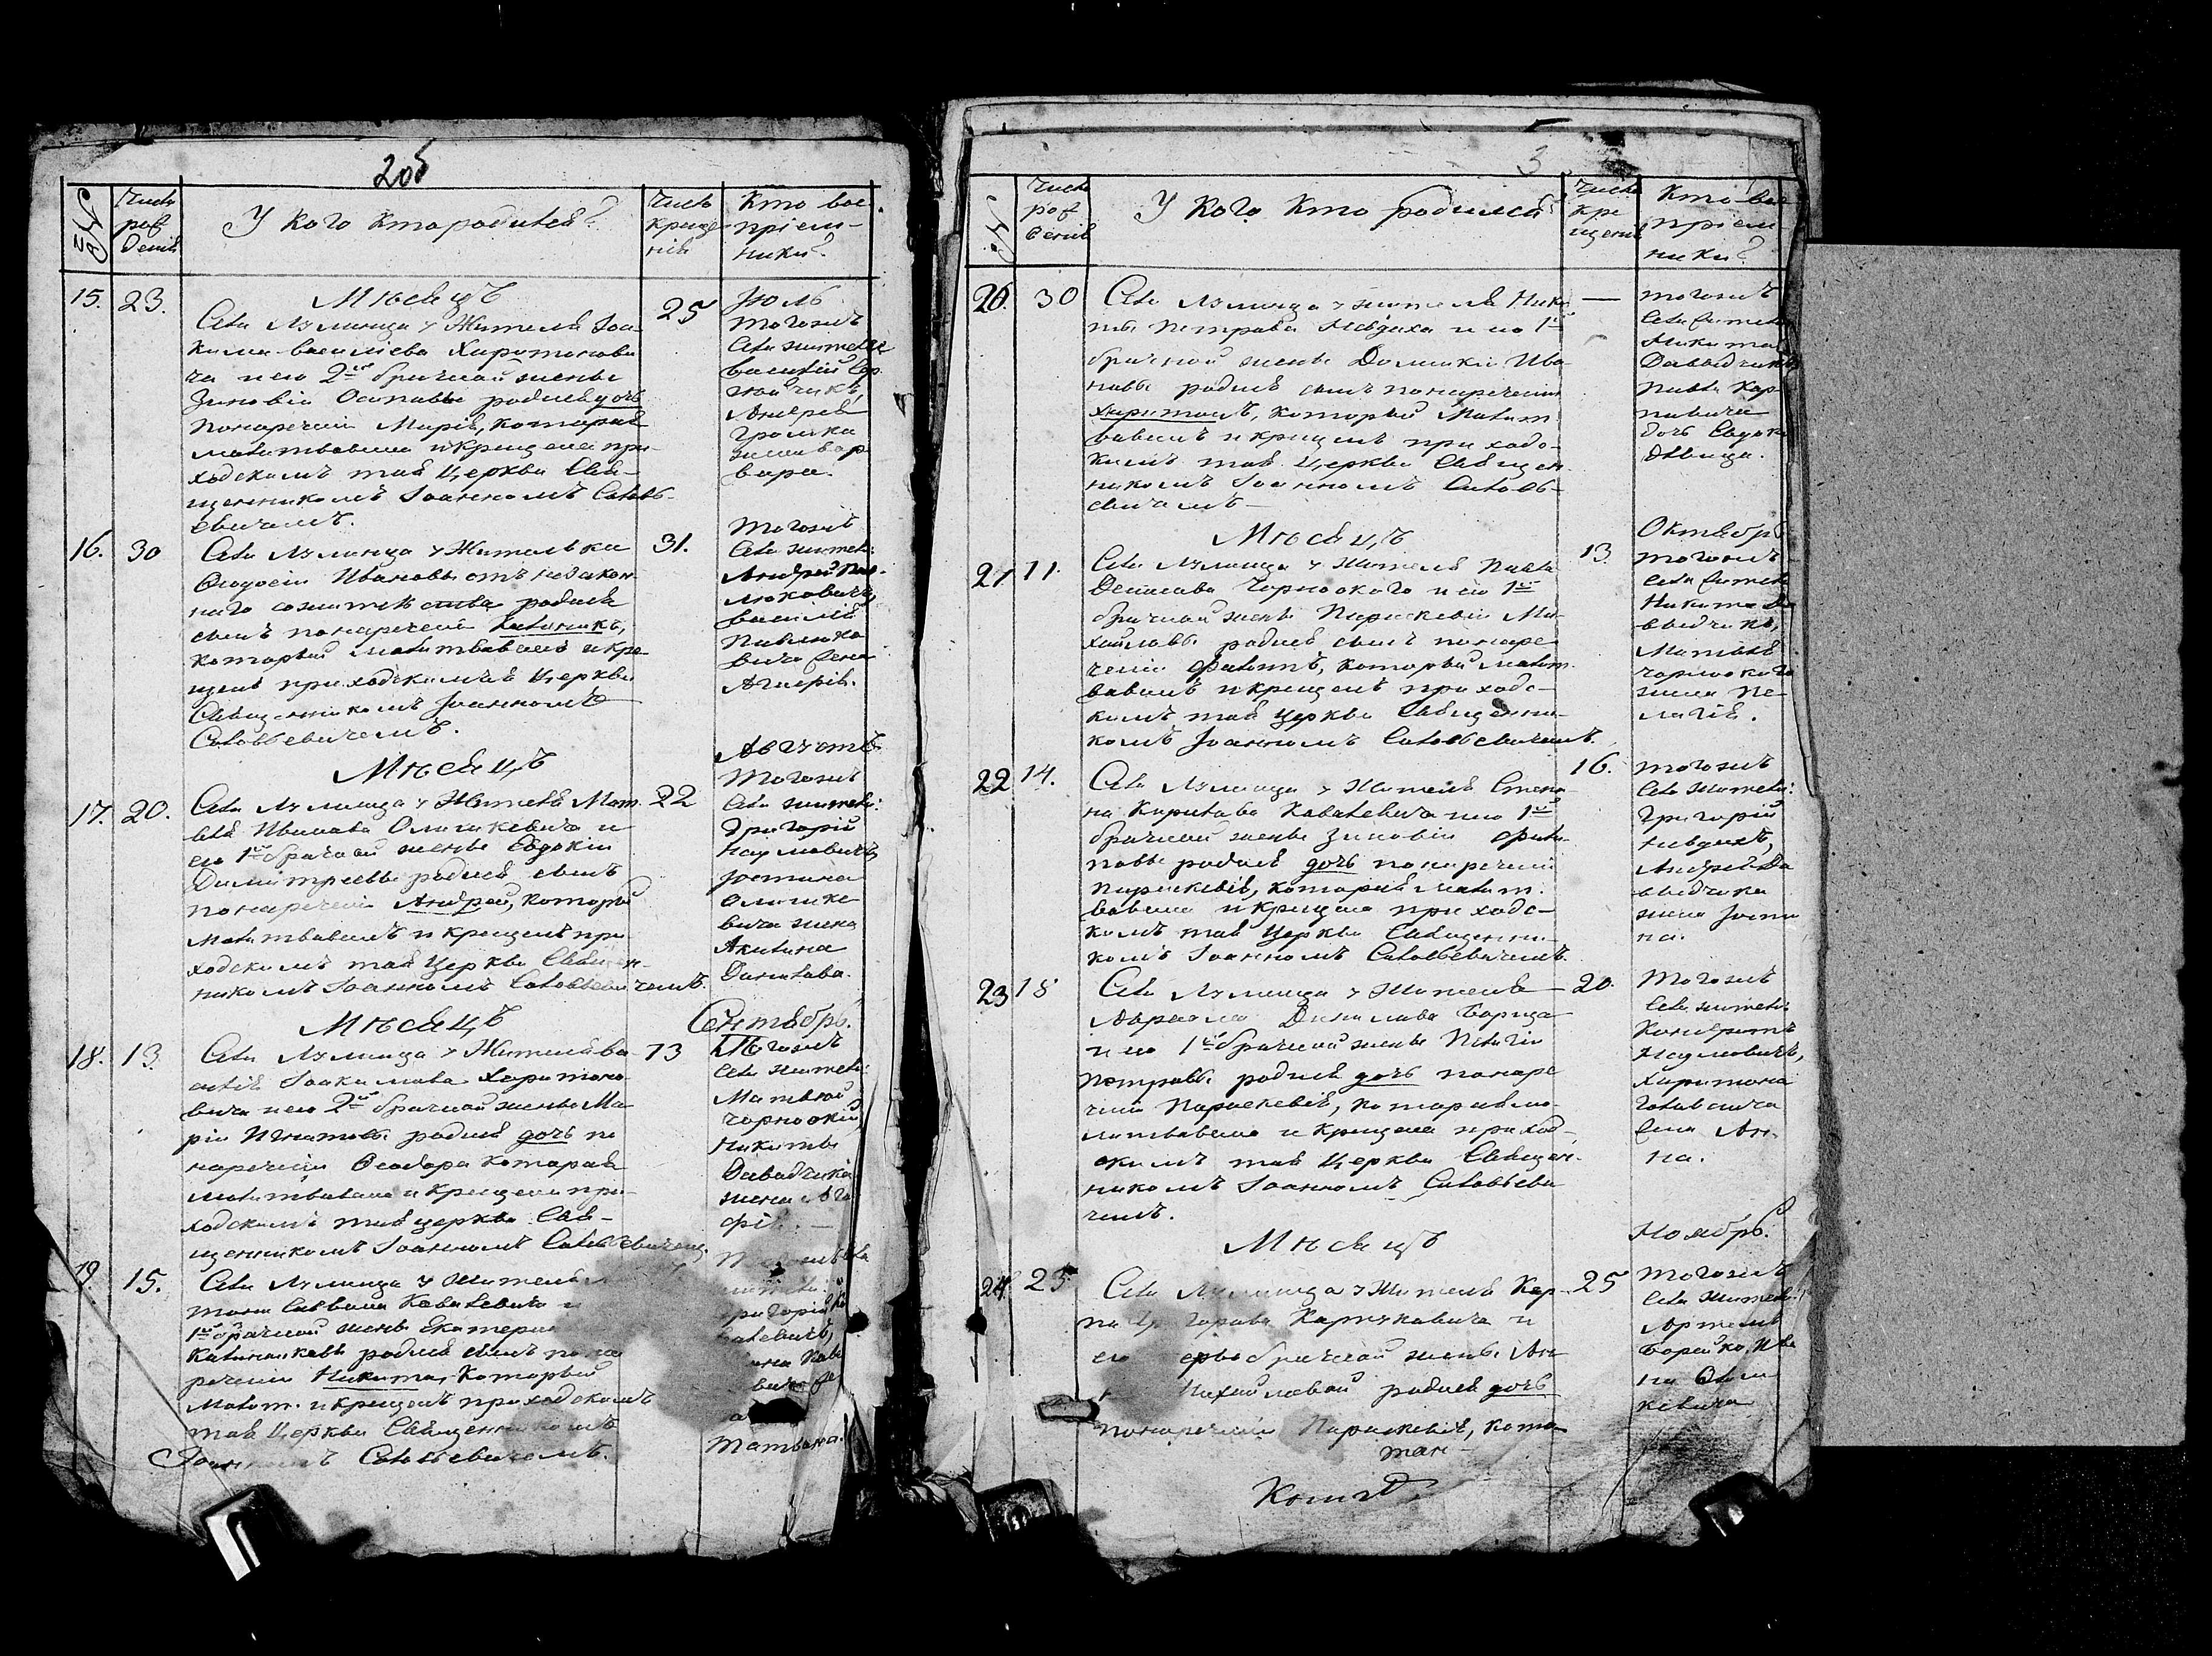 2об
№
Числ
рож
денія
У кого кто родился?
Числ
креще
нія
Кто вос
пріем-
ники?
Мѣсяцъ
Іюль
15.
23.
Села Лумница у Жителя Іоа-
кима Василіева Харитонови
ча и его 2й брачной жены
Зиновіи Осиповы родися дочь
понаречени Марія, которая
молитвована и крещена при-
ходскимъ тоя Церкви Свя-
щенникомъ Іоанномъ Соловь-
евичемъ.
25
тогожъ
села жители
Василій
Андрея
Громика
жена Вар
вара.
16.
30
Села Лумница у Жителька
Ѳеодосіи Ивановы отъ незакон-
наго сожительства родися
сынъ понаречени
который молитвованъ и кре-
щенъ приходскимъ тоя Церкви
Священникомъ Іоанномъ
Соловьевичемъ.
31.
тогожъ
села жители:
Андрей Пав-
люковичъ,
Василія
Павлюко
вича жена
Мѣсяцъ
Августъ
17.
20.
Села Лумница у Жителя Мат
вея Иванова Олишкевича и
его 1й брачной жены Евдокіи
Димитріевы родися сынъ
понаречени Андрей, который
молитвованъ и крещенъ при
ходскимъ тоя Церкви Священ-
никомъ Іоанномъ Соловьевичемъ.
22
тогожъ
села жители:
Григорій
Наумовичъ,
Іустина
Олишке
вича жена
Акилина
Данилова.
Мѣсяцъ
Сентябрь.
18.
13.
Села Лумница у Жителя Ва
силія Іоакимова Харитоно
вича и его 2й брачной жены Ма
ріи Игнатовы родися дочь по
наречени Ѳеодора которая
молитвована и крещена при-
ходскимъ тоя церкви Свя-
щенникомъ Іоанномъ Соловьевичемъ.
13
Тогожъ
села жители:
Матвей
Чорноокій,
Никиты
Давидчика
жена Ага
фія. —
19
15.
Села Лумница у Жителя
Саввина Ковалевича
1й брачной жены Екатерин
родися сынъ пона
речени Никита, который
молит. и крещенъ приходскимъ
тоя Церкви Священникомъ
Іоанномъ Соловьевичемъ.
Григорій Ко
валевичъ,
Татьяна.
3
№
Числ
рож
денія
У кого Кто родился?
Числ
кре
щенія
Кто вос
пріем
ники?
20.
30
Села Лумница у жителя Ники
ты Петрова Невдаха и его 1й
брачной жены Домникіи Ива
новы родися сынъ понаречени
Харитонъ, который молит
вованъ и крещенъ приходс-
кимъ тоя Церкви Священ
никомъ Іоанномъ Соловь-
евичемъ —
—
тогожъ
села жители
Никита
Давидчикъ,
Павла Кар
повича
дочь Евдокія
дѣвица.
Мѣсяцъ
Октябрь
21
11.
Села Лумница у Жителя Павла
Денисова Чорноокого и его 1й
брачной жены Параскевіи Ми
хайловы родися сынъ понаре
чени Филипъ, который молит.
вованъ и крещенъ приходс-
кимъ тоя Церкви Священни-
комъ Іоанномъ Соловьевичемъ.
13.
тогожъ
села жители
Никита Да
видчикъ,
Матвея
Чорноокого
жена Пе
лагія.
22
14.
Села Лумница у Жителя Степа
на Кирилова Ковалевича и его 1й
брачной жены Зиновіи Фили
повы родися дочь понаречени
Параскевія, которая молит.
вована и крещена приходс-
кимъ тоя Церкви Священни-
комъ Іоанномъ Соловьевичемъ.
16.
тогожъ
села жители:
Григорій
Невдахъ,
Андрея Да
видчика
жена Іусти
на.
23
18
Села Лумница у Жителя
Авраама Данилова Борица
и его 1й брачной жены Пелагіи
Петровы родися дочь понаре
чени Параскевія, которая мо-
литвована и крещена приход-
скимъ тоя Церкви Священ-
никомъ Іоанномъ Соловьеви
чемъ.
20.
тогожъ
села жители:
Кондратъ
Наумовичъ,
Харитона
жена Ан-
на.
Мѣсяцъ
Ноябрь.
24.
23
Села Лумница у Жителя Кар-
па Григорова и
его перво брачной жены Ан
Михайловой родися дочь
понаречени Параскевія, кото
25
тогожъ
села жители:
Артемъ
Борейко, Ива
на Олиш
кевича